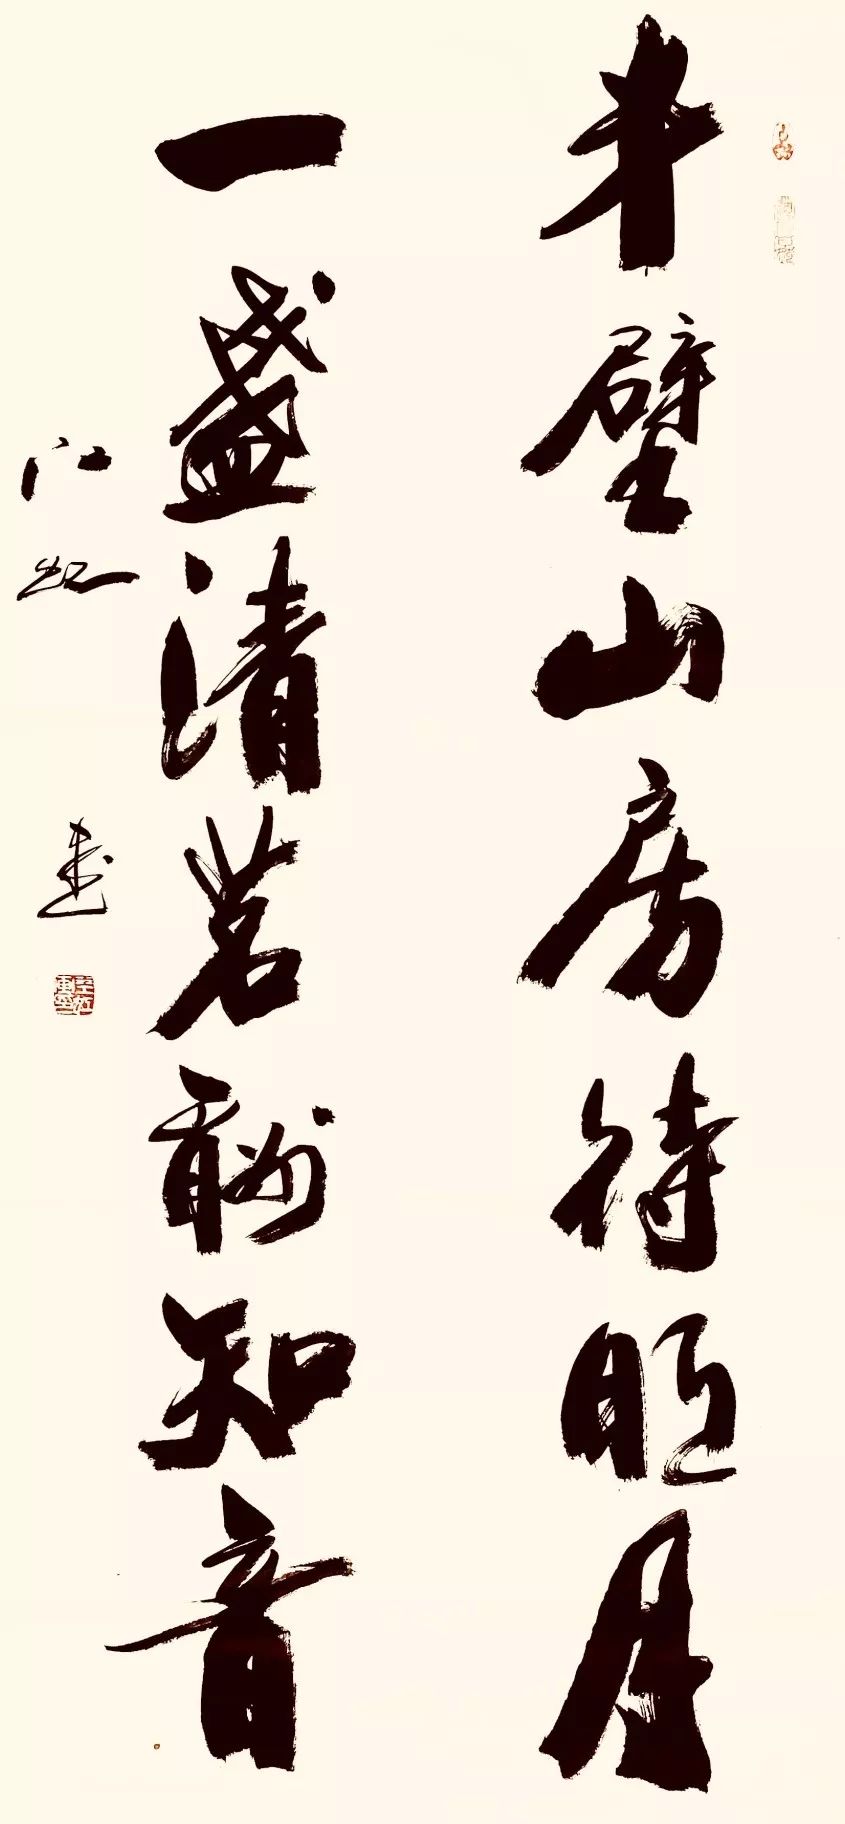 半壁山房待明月
一盏清茗酬知音